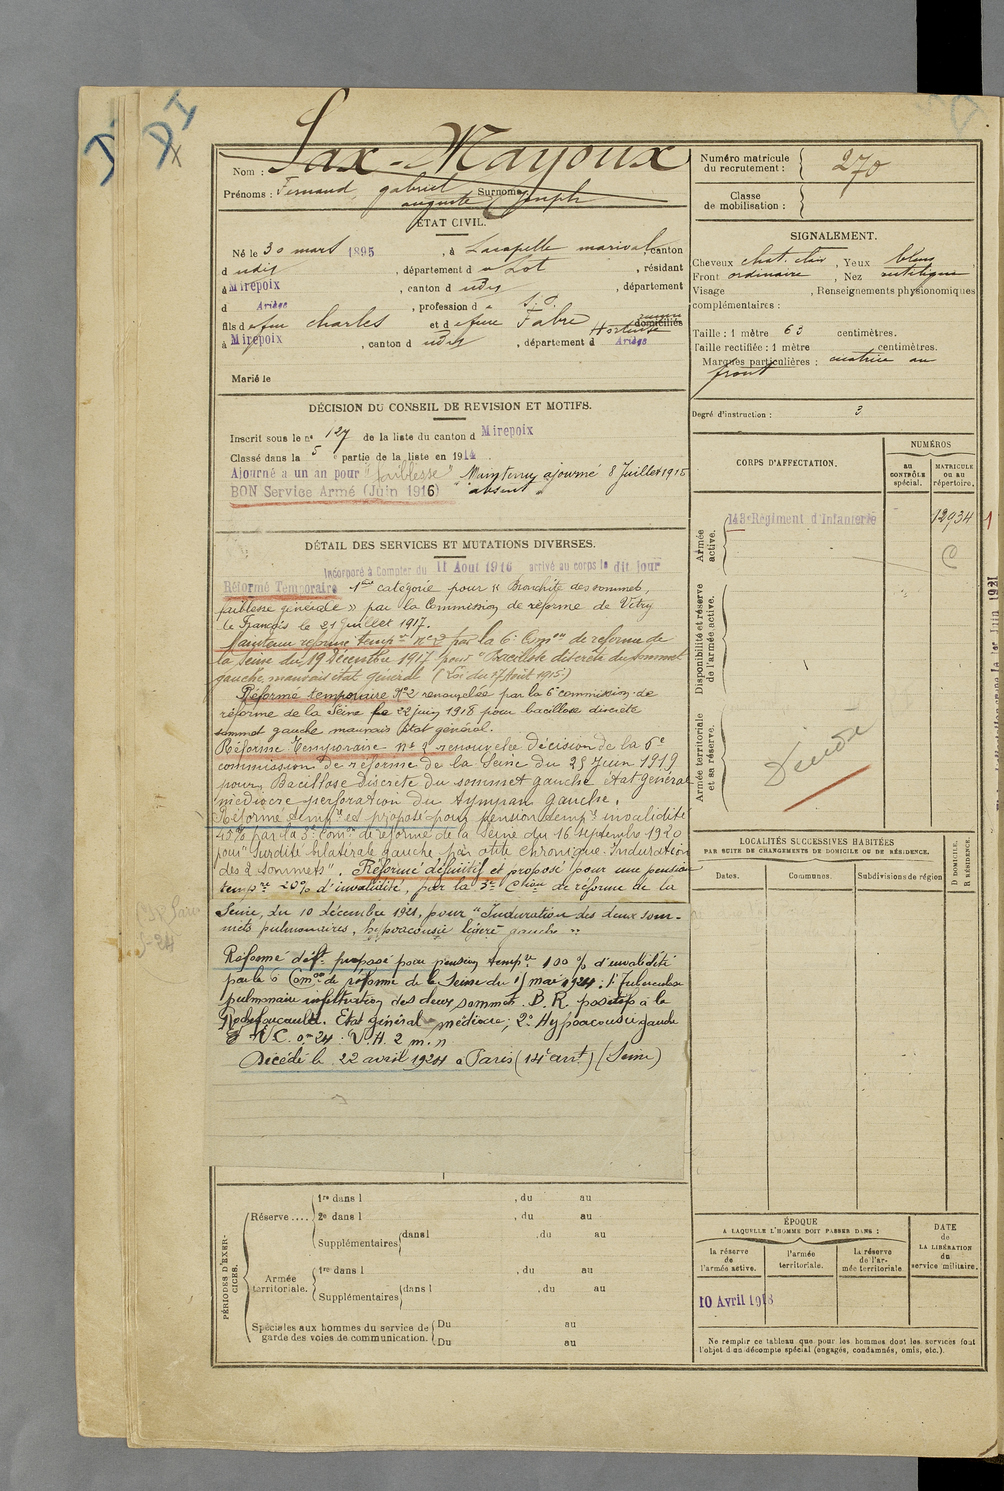 DI
Nom : Sax-Mayoux
Prénoms : Fernand, gabriel Surnoms
auguste, Joseph
ÉTAT CIVIL.
Né le 30 mars 1895, à Lacapelle marival, canton
d udis, département d u Lot, résidant
à Mirepoix, canton d udis, département
d Ariège, profession d e S.P.
fils d e feu charles et d e feue Fabre Hortense domiciliés
à Mirepoix, canton d udis, département d Ariège
Marié le
DÉCISION DU CONSEIL DE REVISION ET MOTIFS.
Inscrit sous le n° 127 de la liste du canton d Mirepoix
Classé dans la 5e partie de la liste en 1914
Ajourné a un an pour "faiblesse" Maintenu ajourné 8 Juillet 1915
BON Service Armé (Juin 1916) "absent"
DÉTAIL DES SERVICES ET MUTATIONS DIVERSES.
Incorporé à Compter du 11 Aout 1916 arrivé au corps le dit jour
Réformé Temporaire 1ère catégorie pour « Bronchite des sommets,
faiblesse générale » par la Commission de réforme de Vitry
le François le 21 Juillet 1917.
Maintenu réformé tempre n° 2 par la 6e Comon de réforme de
la Seine du 19 Décembre 1917 pour "Bacillose discrète du sommet
gauche, mauvais état général (Loi du 17 Août 1915)
Réformé temporaire N°2 renouvelée par la 6e commission de
réforme de la Seine le 22 juin 1918 pour bacillose discrète
sommet gauche mauvais état général.
Réforme Temporaire n° 2 renouvelée Décision de la 6e
commission de réforme de la Seine du 25 Juin 1919
pour Bacillose Discrète du sommet gauche état général
médiocre perforation du tympan gauche.
Réformé tempre et proposé pour pension tempre invalidité
45% par la 3e Comon de réforme de la Seine du 16 septembre 1920
pour "surdité bilatérale gauche par otite chronique. Induration
des 2 sommets". Réformé définitif et proposé pour une pension
tempre 20% d'invalidité, par la 3e Cion de réforme de la
Seine, du 10 décembre 1921, pour "Induration des deux som-
mets pulmonaires, hypoacousie légère gauche".
Réformé déft proposé pour pension tempre 100 % d'invalidité
par la 6e Comon de réforme de la Seine du 15 mai 1924 : 1° Tuberculose
pulmonaire infiltration des deux sommets. B. K. positif à la
Rochefoucauld. Etat général médiocre ; 2° Hypoacousie gauche
V.C. 0m24 : V.H. 2 m.
Décédé le 22 avril 1924 à Paris (14e arrt) (Seine)
PÉRIODES D'EXERCICES.
Réserve .... 1re dans l , du au
2e dans l , du au
Supplémentaires dans l , du au
Armée territoriale. 1re dans l , du au
Supplémentaires dans l , du au
Spéciales aux hommes du service de garde des voies de communication. Du au
Du au
Numéro matricule du recrutement : 270
Classe de mobilisation :
SIGNALEMENT.
Cheveux chat. clair, Yeux bleus
Front ordinaire, Nez rectiligne
Visage , Renseignements physionomiques
complémentaires :
Taille : 1 mètre 63 centimètres.
Taille rectifiée : 1 mètre centimètres.
Marques particulières : cicatrice au
front
Degré d'instruction : 3
CORPS D'AFFECTATION.
NUMÉROS
AU CONTRÔLE spécial.
MATRICULE OU AU répertoire.
Armée active.
143e Régiment d'Infanterie 12934 1
Disponibilité et réserve de l'armée active.
Armée territoriale et sa réserve.
Décédé
LOCALITÉS SUCCESSIVES HABITÉES
PAR SUITE DE CHANGEMENTS DE DOMICILE OU DE RÉSIDENCE.
Dates. Communes. Subdivisions de région
D DOMICILE.
R RÉSIDENCE.
ÉPOQUE
A LAQUELLE L'HOMME DOIT PASSER DANS :
la réserve de l'armée active.
l'armée territoriale.
la réserve de l'armée territoriale
DATE de LA LIBÉRATION du service militaire.
10 Avril 1918
Ne remplir ce tableau que pour les hommes dont les services font
l'objet d'un décompte spécial (engagés, condamnés, omis, etc.).